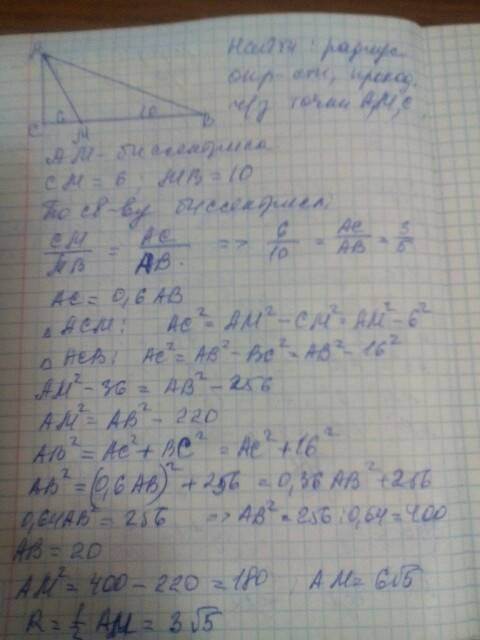 Найти: радиус
окр-сти, проход.
ч/з точки A, M, C.
A
C 6 M 10 B
AM - биссектриса
CM = 6; MB = 10
По св-ву биссектрисы
CM/MB = AC/AB. => 6/10 = AC/AB = 3/5
AC = 0,6 AB
△ ACM: AC² = AM² - CM² = AM² - 6²
△ ACB: AC² = AB² - BC² = AB² - 16²
AM² - 36 = AB² - 256
AM² = AB² - 220
AB² = AC² + BC² = AC² + 16²
AB² = (0,6 AB)² + 256 = 0,36 AB² + 256
0,64 AB² = 256 => AB² = 256 : 0,64 = 400
AB = 20
AM² = 400 - 220 = 180, AM = 6√5
R = ½ AM = 3√5